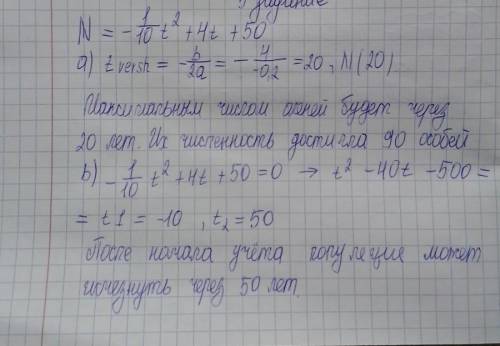 N = -1/10 t² + 4t + 50
a) t versh = -b/2a = -4/-0,2 = 20, N(20)
Максимальным числом оленей будет через
20 лет. Их численность достигла 90 особей
b) -1/10 t² + 4t + 50 = 0 → t² - 40t - 500 =
= t1 = -10, t₂ = 50
После начала учёта популяция может
исчезнуть через 50 лет.